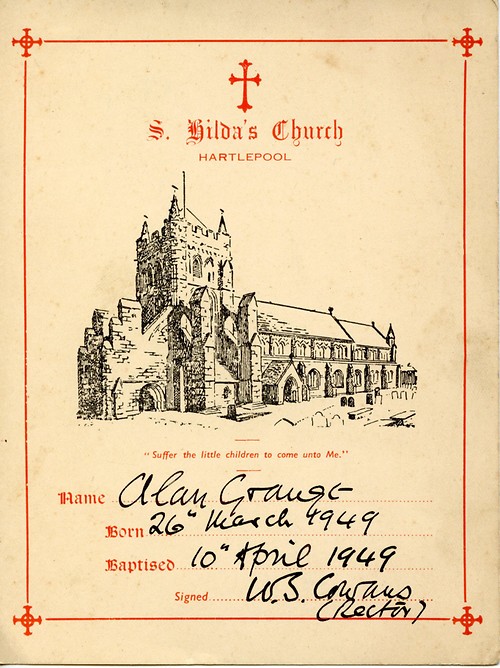 S. Hilda's Church
HARTLEPOOL
"Suffer the little children to come unto Me."
Name Alan Grange
Born 26" March 1949
Baptised 10" April 1949
Signed W.B. Cowans
(Rector)